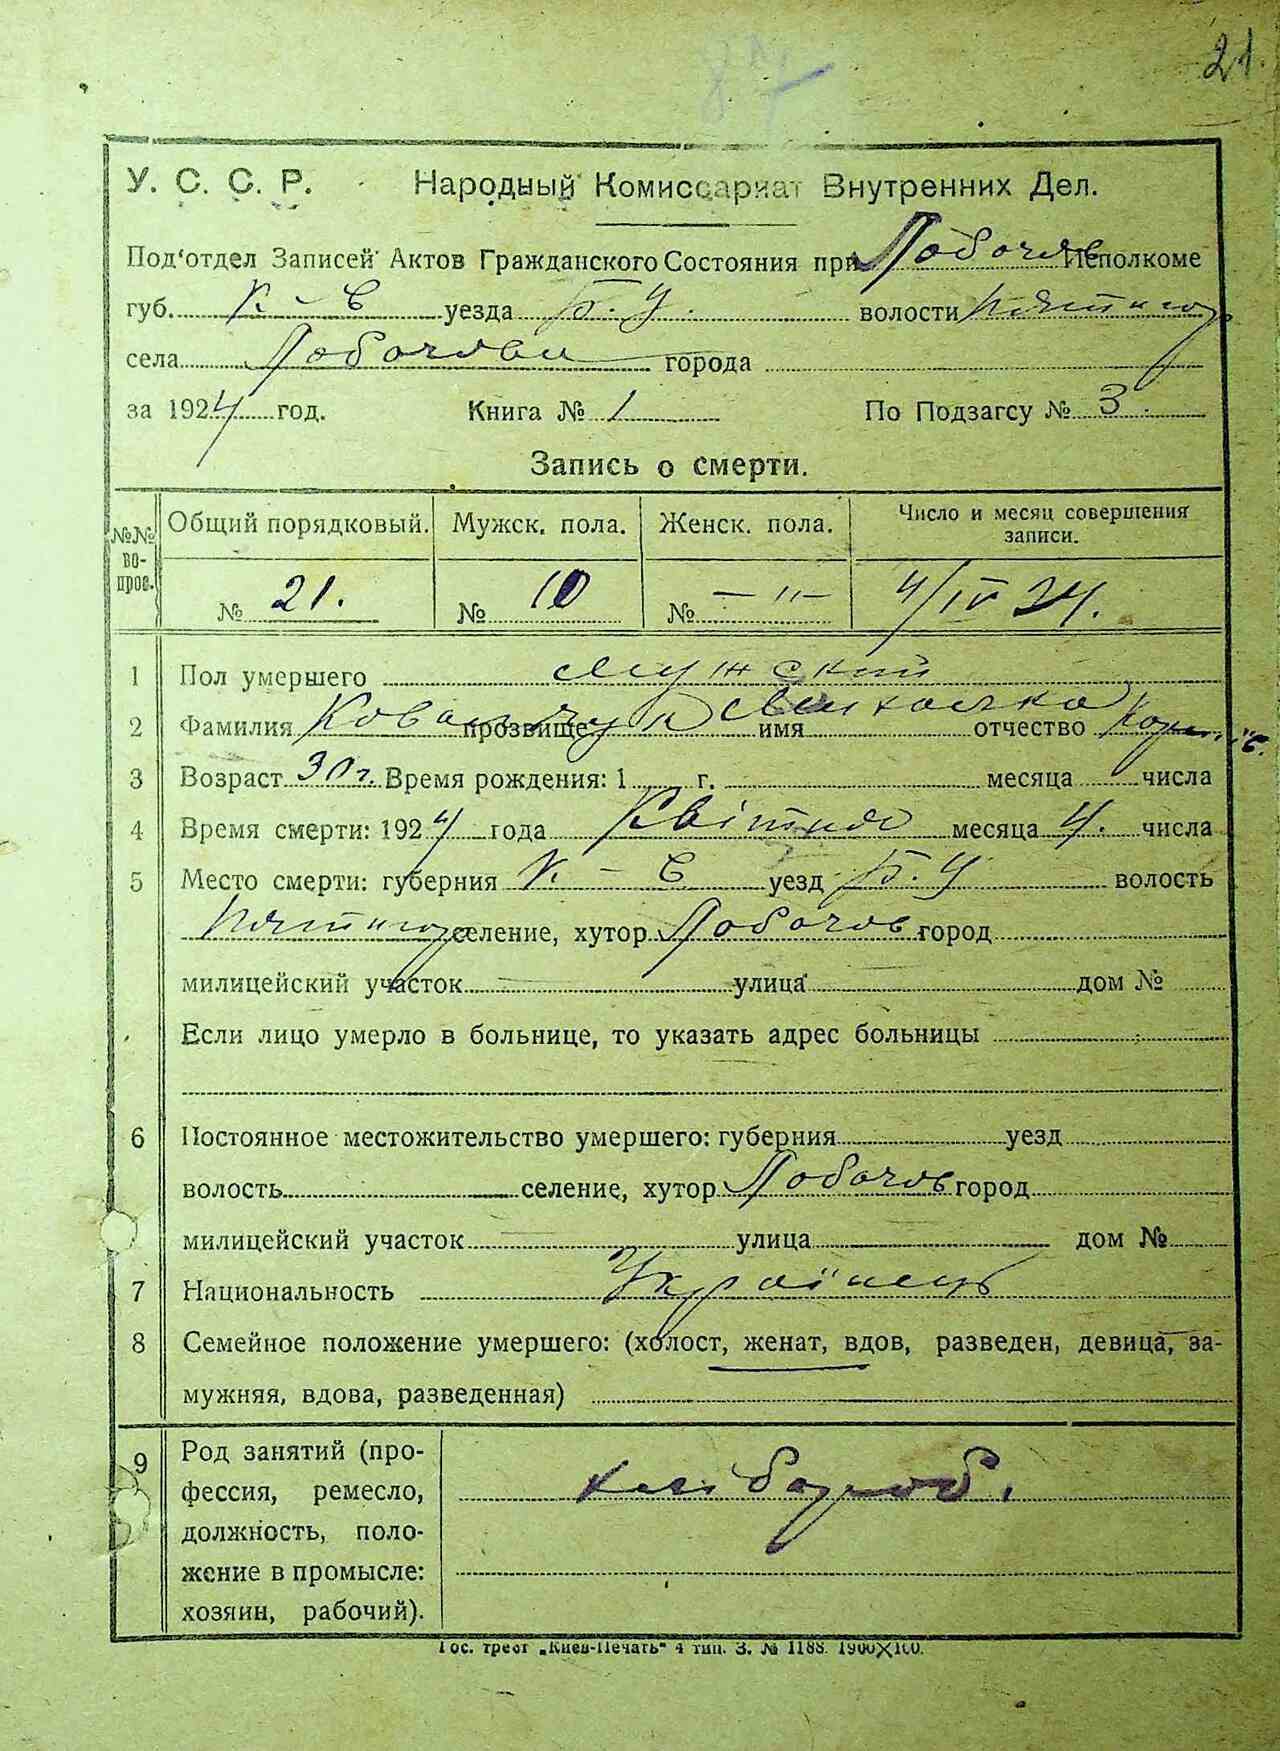 21.
У. С. С. Р. Народный Комиссариат Внутренних Дел.
Под'отдел Записей Актов Гражданского Состояния при Лобачов Исполкоме
губ. К-Є уезда Б.Ц. волости Пятигор
села Лобачови города
за 1924 год. Книга № 1 По Подзагсу № 3
Запись о смерти.
№№ вопров. Общий порядковый. Мужск. пола. Женск. пола. Число и месяц совершения записи.
№ 21. № 10 № — "— 4/IV 24.
1 Пол умершего мужский
2 Фамилия Ковальчук прозвище имя отчество
3 Возраст 30 г. Время рождения: 1 г. месяца числа
4 Время смерти: 1924 года Квітня месяца 4. числа
5 Место смерти: губерния К-Є уезд Б.Ц волость
Пятигор селение, хутор Лобачов город
милицейский участок улица дом №
Если лицо умерло в больнице, то указать адрес больницы
6 Постоянное местожительство умершего: губерния уезд
волость селение, хутор Лобачов город
милицейский участок улица дом №
7 Национальность Українець
8 Семейное положение умершего: (холост, женат, вдов, разведен, девица, за-
мужняя, вдова, разведенная)
9 Род занятий (про-
фессия, ремесло, хлібороб.
должность, поло-
жение в промысле:
хозяин, рабочий).
Гос. трест „Киев-Печать" 4 тип. З. № 1188. 1900×100.